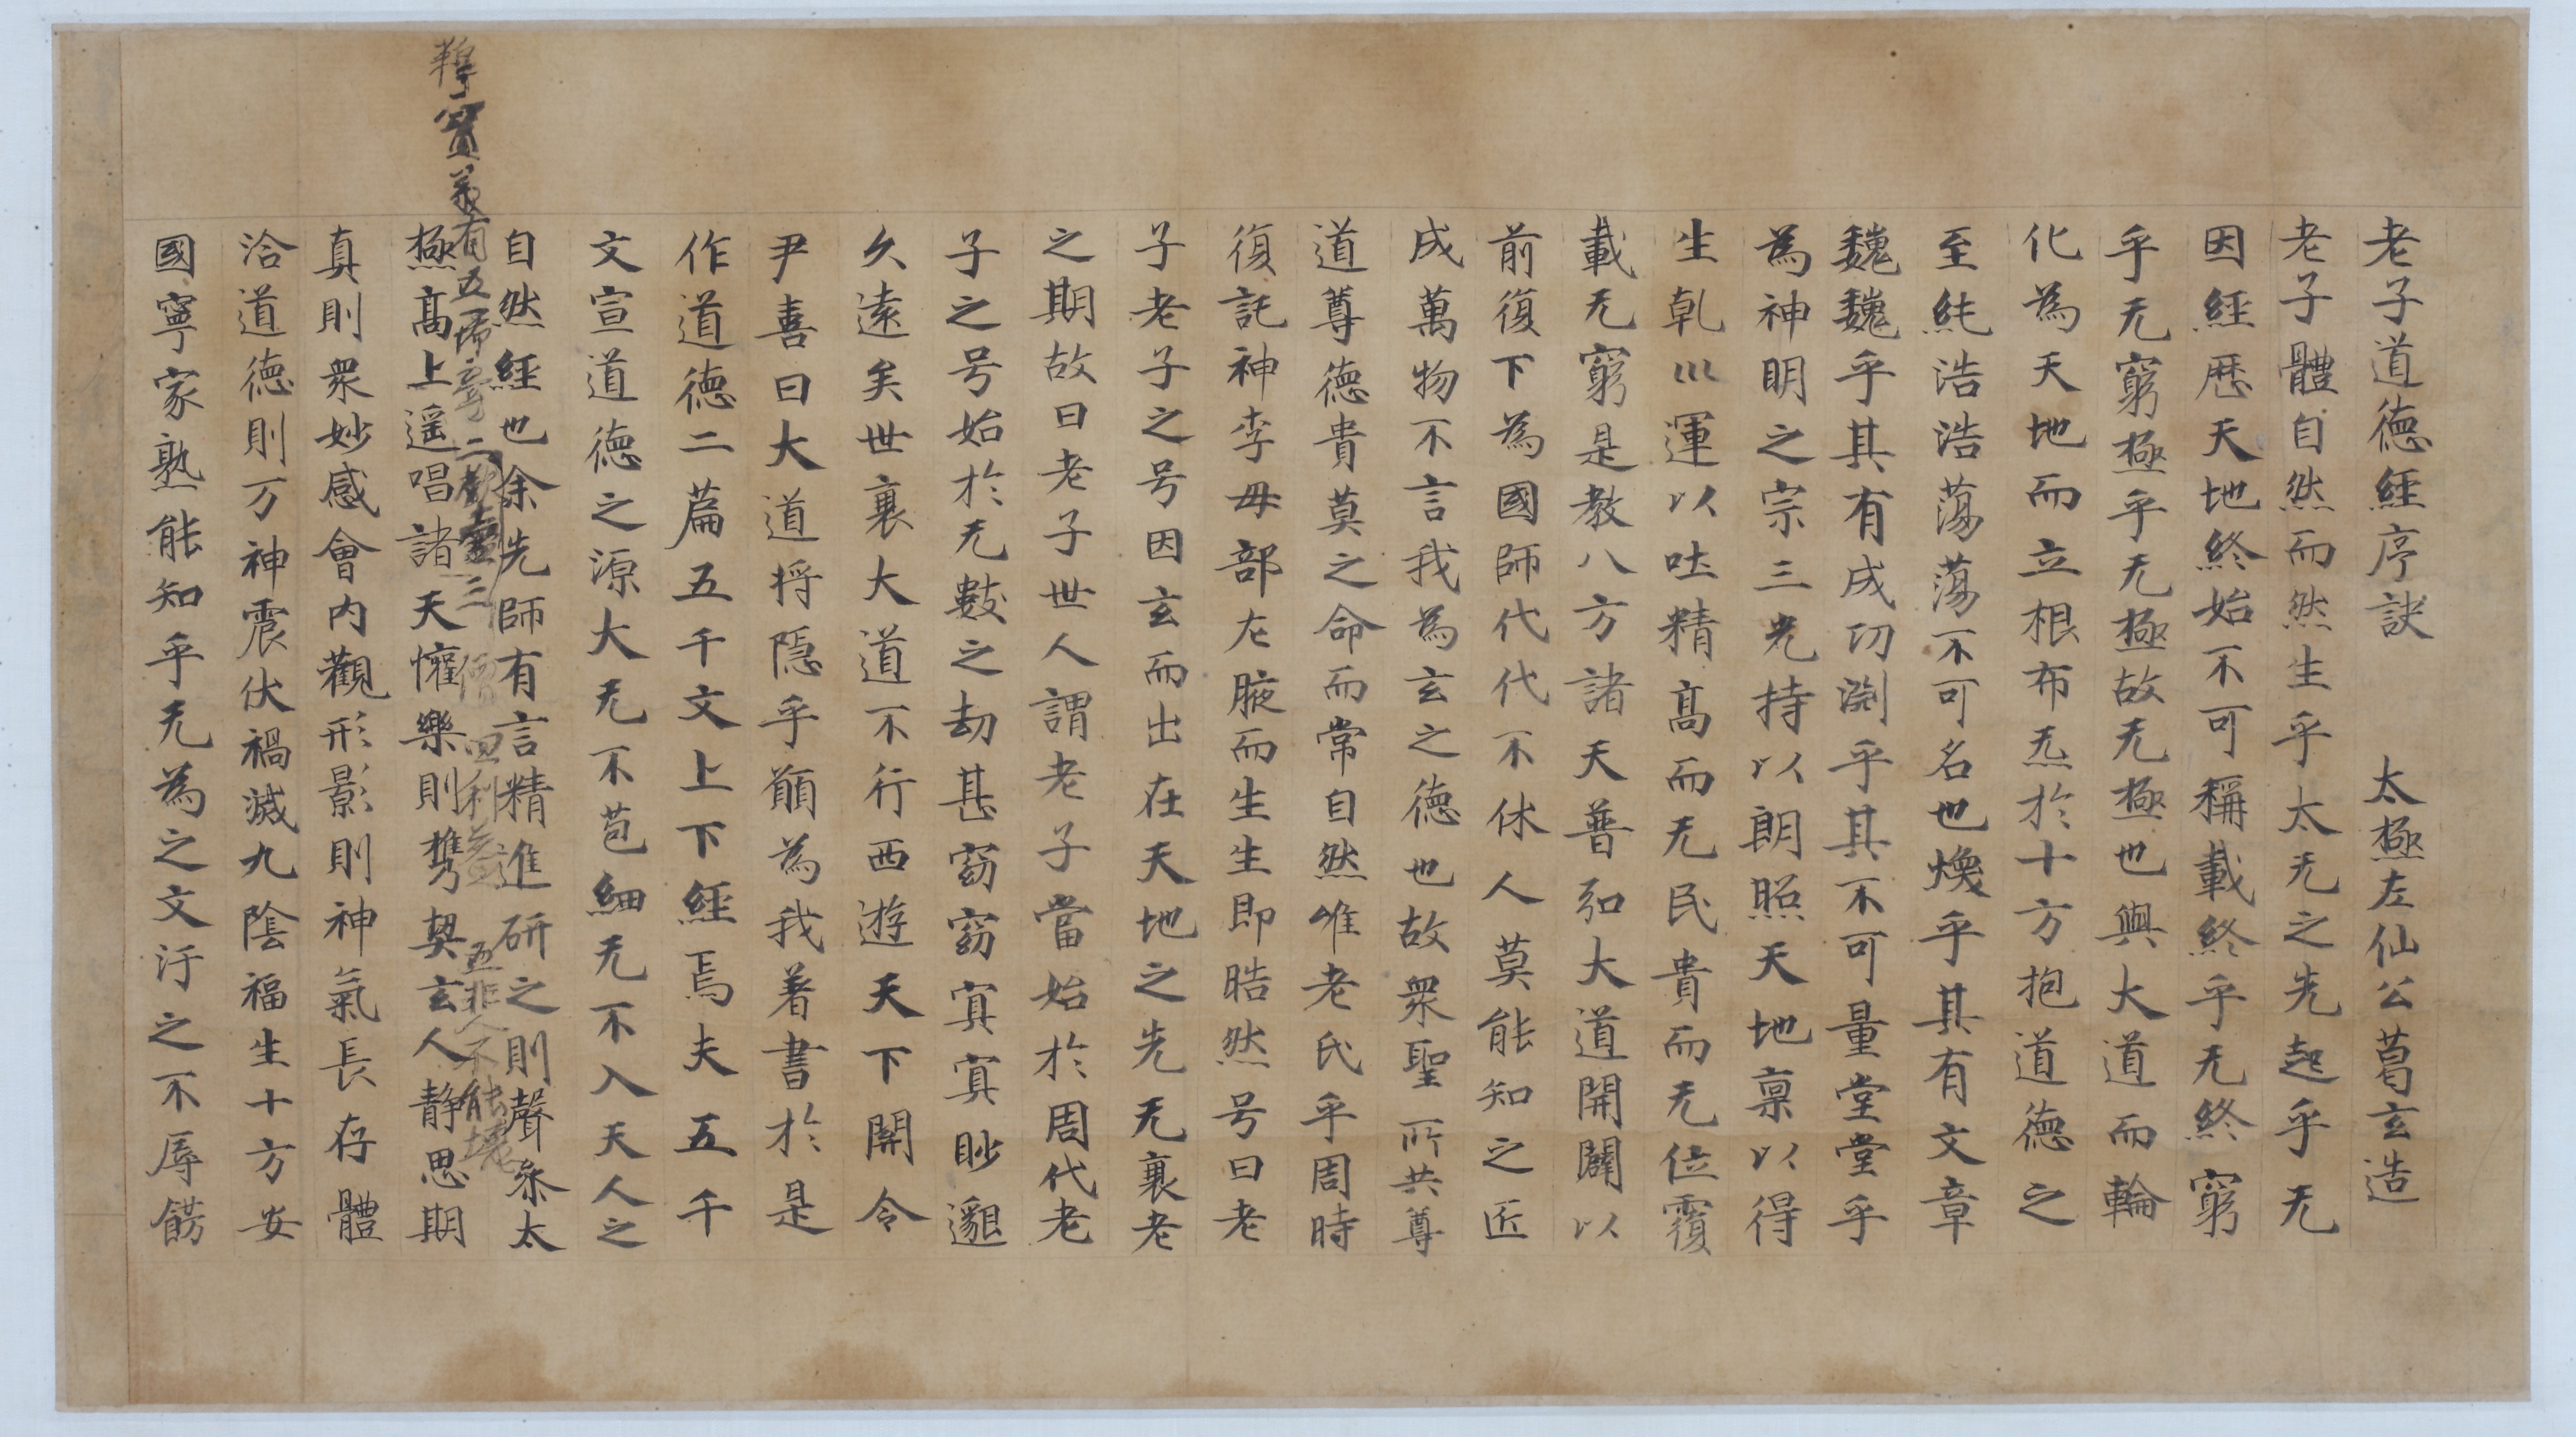 老子道德經序訣　太極左仙公葛玄造
老子體自然而然生乎太无之先起乎无
因經歷天地終始不可稱載終乎无終窮
乎无窮極乎无極故无極也與大道而輪
化為天地而立根布炁於十方抱道德之
至純浩浩蕩蕩不可名也煥乎其有文章
巍巍乎其有成功淵乎其不可量堂堂乎
為神明之宗三光持以朗照天地稟以得
生乹巛運以吐精高而无民貴而无位覆
載无窮是教八方諸天普弘大道開闢以
前復下為國師代代不休人莫能知之匠
成萬物不言我為玄之德也故眾聖所共尊
道尊德貴莫之命而常自然唯老氏乎周時
復託神李母部左腋而生生即晧然号曰老
子老子之号因玄而出在天地之先无衰老
之期故曰老子世人謂老子當始於周代老
子之号始於无數之劫甚窈窈冥冥眇邈
久遠矣世衰大道不行西遊天下關令
尹喜曰大道将隱乎願為我著書於是
作道德二篇五千文上下經焉夫五千
文宣道德之源大无不苞細无不入天人之
自然經也余先師有言精進研之則聲叅太
義有五一二三四利益五非人不能壞
極高上遥唱諸天懽樂則携契玄人静思期
真則眾妙感會内觀形影則神氣長存體
洽道德則万神震伏禍滅九陰福生十方安
國寧家熟能知乎无為之文汙之不辱餝